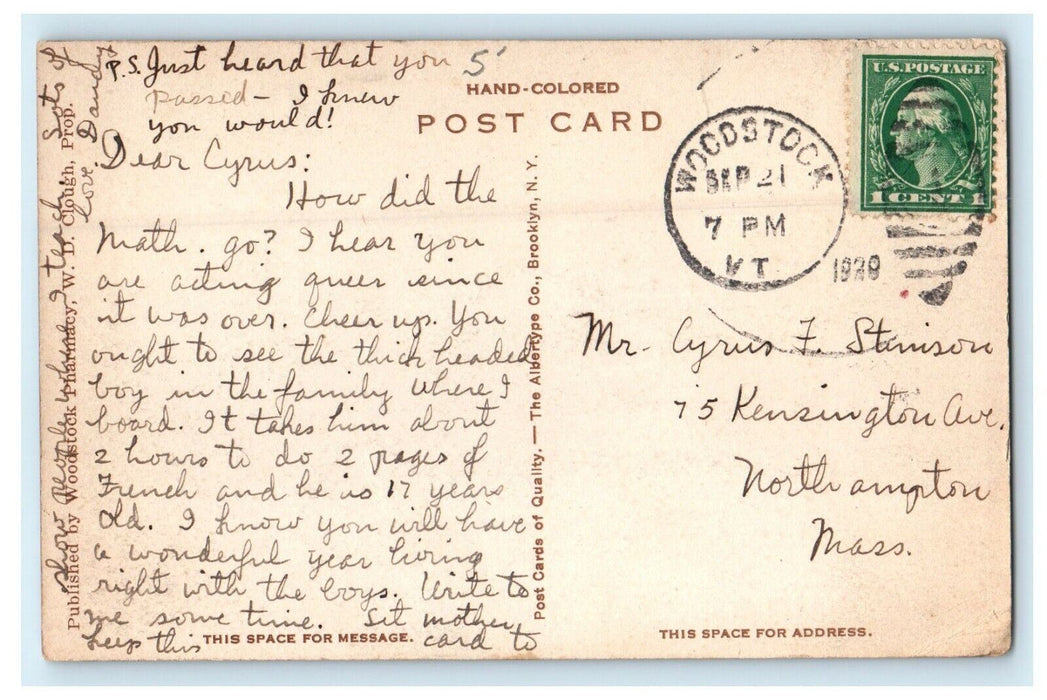 P.S. Just heard that you
passed - I knew
you would!
5
Dear Cyrus:
How did the
Math. go? I hear you
are acting queer since
it was over. Cheer up. You
ought to see the thick headed
boy in the family where I
board. It takes him about
2 hours to do 2 pages of
French and he is 17 years
old. I know you will have
a wonderful year living
right with the boys. Write to
me some time. Let mother
keep this card to
show people where I teach. Lots of
love. Dandy
Published by Woodstock Pharmacy, W. D. Clough, Prop.
HAND-COLORED
POST CARD
Post Cards of Quality. — The Albertype Co., Brooklyn, N. Y.
THIS SPACE FOR MESSAGE.
WOODSTOCK
SEP 21
7 PM
VT.
1920
U.S. POSTAGE
1 CENT 1
Mr. Cyrus F. Stimson
75 Kensington Ave.
Northampton
Mass.
THIS SPACE FOR ADDRESS.